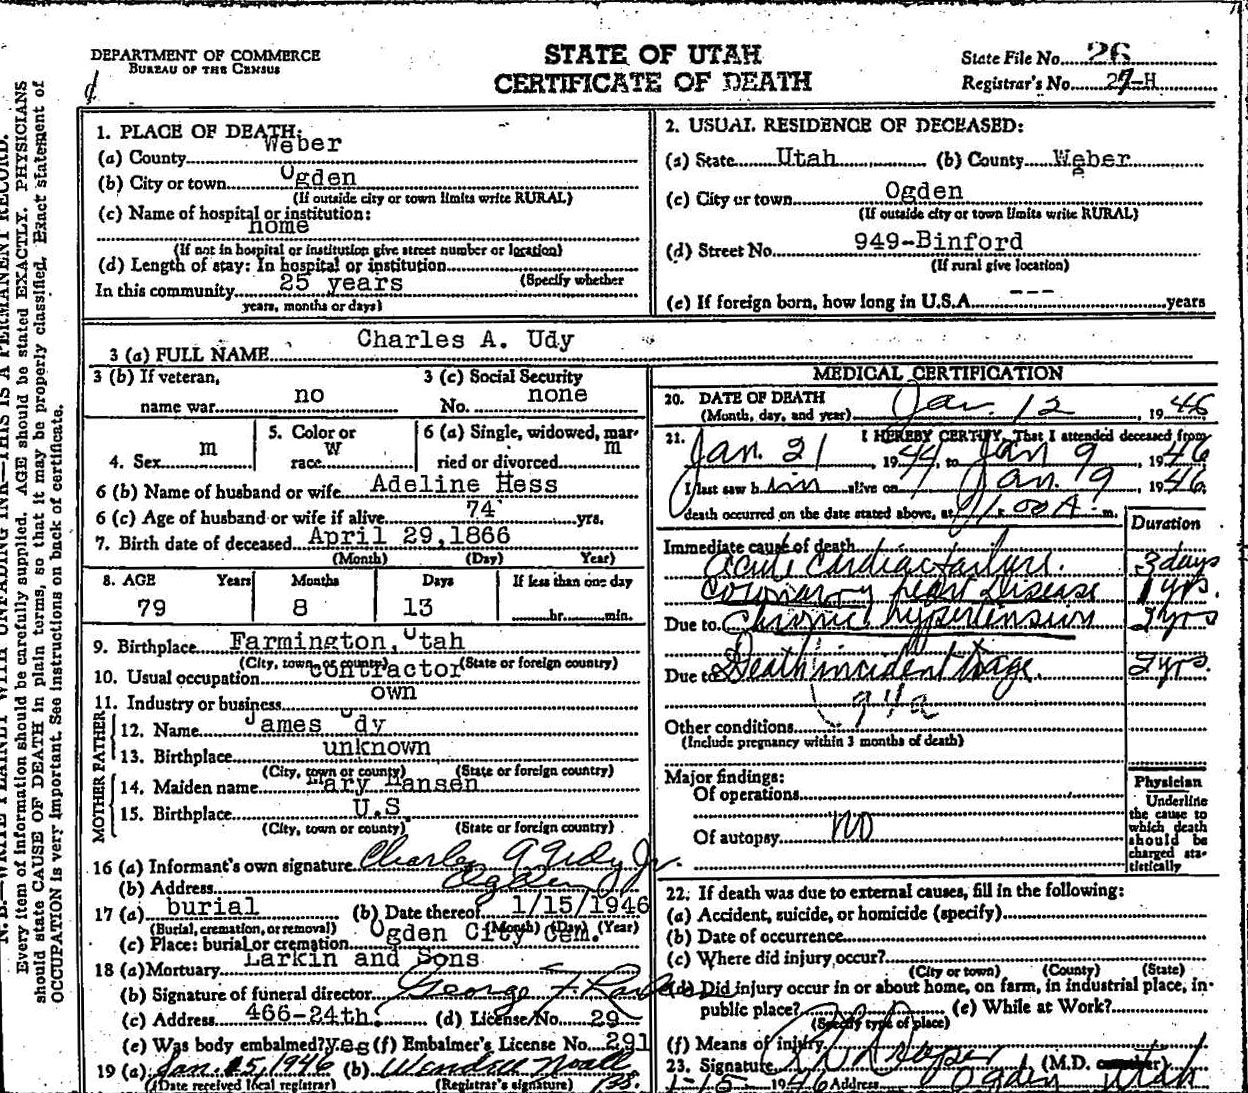 DEPARTMENT OF COMMERCE
BUREAU OF THE CENSUS
STATE OF UTAH
CERTIFICATE OF DEATH
State File No. 26
Registrar's No. 27-H
N. B.—WRITE PLAINLY WITH UNFADING INK—THIS IS A PERMANENT RECORD.
Every item of information should be carefully supplied. AGE should be stated EXACTLY. PHYSICIANS
should state CAUSE OF DEATH in plain terms, so that it may be properly classified. Exact statement of
OCCUPATION is very important. See instructions on back of certificate.
1. PLACE OF DEATH:
(a) County Weber
(b) City or town Ogden
(If outside city or town limits write RURAL)
(c) Name of hospital or institution:
home
(If not in hospital or institution give street number or location)
(d) Length of stay: In hospital or institution
(Specify whether
In this community 25 years
years, months or days)
2. USUAL RESIDENCE OF DECEASED:
(a) State Utah (b) County Weber
(c) City or town Ogden
(If outside city or town limits write RURAL)
(d) Street No. 949-Binford
(If rural give location)
(e) If foreign born, how long in U.S.A. --- years
3 (a) FULL NAME Charles A. Udy
3 (b) If veteran, name war no
3 (c) Social Security No. none
4. Sex m
5. Color or race W
6 (a) Single, widowed, married or divorced m
6 (b) Name of husband or wife Adeline Hess
6 (c) Age of husband or wife if alive 74 yrs.
7. Birth date of deceased April 29,1866
(Month) (Day) Year)
8. AGE Years Months Days If less than one day
79 8 13 hr. min.
9. Birthplace Farmington, Utah
(City, town or county) (State or foreign country)
10. Usual occupation contractor
11. Industry or business own
FATHER
12. Name James Udy
13. Birthplace unknown
(City, town or county) (State or foreign country)
MOTHER
14. Maiden name Mary Hansen
15. Birthplace U.S.
(City, town or county) (State or foreign country)
16 (a) Informant's own signature Charles A Udy Jr.
(b) Address Ogden
17 (a) burial (b) Date thereof 1/15/1946
(Burial, cremation, or removal) (Month) (Day) (Year)
(c) Place: burial or cremation Ogden City Cem.
18 (a) Mortuary Larkin and Sons
(b) Signature of funeral director George F Larkin
(c) Address 466-24th. (d) License No. 29
(e) Was body embalmed? yes (f) Embalmer's License No. 291
19 (a) Jan. 15, 1946 (b) Wendell Noall
(Date received local registrar) (Registrar's signature)
MEDICAL CERTIFICATION
20. DATE OF DEATH
(Month, day, and year) Jan. 12, 1946
21. I HEREBY CERTIFY, That I attended deceased from
Jan. 21, 1944, to Jan 9, 1946
I last saw him alive on Jan. 9 1946,
death occurred on the date stated above, at 1:00 A. m.
Duration
Immediate cause of death
Acute Cardiac failure. 3 days
Coronary heart Disease 1 yrs.
Due to Chronic hypertension 2 yrs
Due to Death incident to age. 2 yrs.
94a
Other conditions
(Include pregnancy within 3 months of death)
Major findings:
Of operations
Of autopsy no
Physician
Underline
the cause to
which death
should be
charged sta-
tistically
22. If death was due to external causes, fill in the following:
(a) Accident, suicide, or homicide (specify)
(b) Date of occurrence
(c) Where did injury occur?
(City or town) (County) (State)
(d) Did injury occur in or about home, on farm, in industrial place, in
public place? (e) While at Work?
(Specify type of place)
(f) Means of injury
23. Signature Draper (M.D.
1-15-1946 Address Ogden Utah